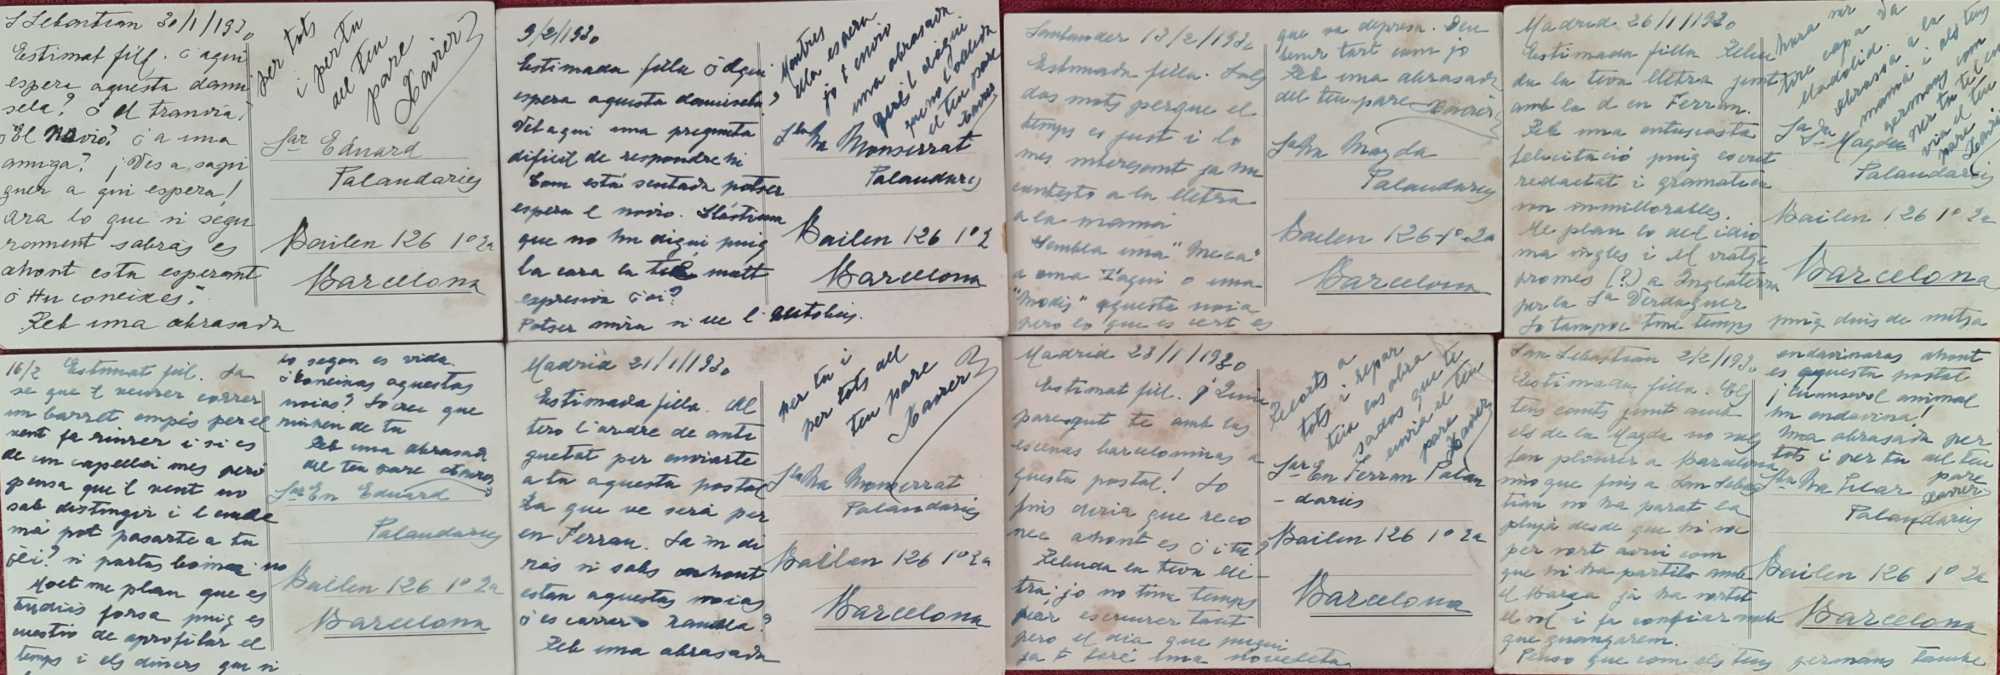 S Sebastian 30/1/1930
Estimat fill. ó a qui
espera aquesta dami
sela? ó al tranvia,
ó El novió? ó a una
amiga? ¡Ves a sapi
guer a qui espera!
Ara lo que si segu
rament sabrás es
ahont esta esperant
ó Hu coneixes?
Reb una abrasada
per tots
i pertu
del teu
pare
Xavier
Sar Eduard
Palaudaries
Bailen 126 1º 2a
Barcelona
9/2/1930
Estimada filla ó a qui
espera aquesta damisela?
Vetaqui una pregunta
dificil de respondrehi
Com está sentada potser
espera l novio. Llástima
que no hu digui puig
la cara la té molt
expresiva ó oi?
Potser mira si ve l autobus.
Mentres
ella espera
jo t envio
una abrasada
que no l cauda
el teu pare
Xavier
Sta Ma Monserrat
Palaudaries
Bailen 126 1º 2
Barcelona
Santander 13/2/1930
Estimada filla. Sols
dos mots perque el
temps es just i lo
mes interesant ja hu
contesto a la lletra
a la mamá
Sembla una "Meca"
a oma d'aqui o una
"Modis" aquesta noia
pero lo que es cert es
que va depresa. Deu
tenir tart com jo
Reb una abrasada
del teu pare Xavier
Sa Ma Magda
Palaudaries
Bailen 126-1º-2a
Barcelona
Madrid 26/1/1930
Estimada filla Rebu
da la teva lletra junt
amb la d en Ferran.
Reb una entusiasta
felicitació puig escrit
redactat i gramatica
son inmillorables.
Me plau lo del idio
ma ingles i el viatge
promés (?) a Inglaterra
per la Sa Verdaguer
Jo tampoc tinc temps puig dins de mitja
hora
tire cap a
Madolid.
abrasa a la
mamá i als teus
germans com
per tu t'el en
via el teu
pare
Xavier
Magda
Palaudaries
Bailen 126 1º 2a
Barcelona
16/2 Estimat fill. Ja
se que l veurer correr
un barret empés per el
vent fa riurer i si es
de un capellá mes peró
pensa que l vent no
sab distingir i l
má pot pasarte a tu
óEi? ni portas boina no
Molt me plau que es
tudiis forsa puig es
cuestio de aprofitar el
temps i els diners que si
es segon es vida.
ó Coneixes aquestas
noias? Jo crec que
riuhen de tu
Reb una abrasada
del teu pare Xavier
Sar En Eduard
Palaudaries
Bailen 126 1º 2a
Barcelona
Madrid 21/1/1930
Estimada filla. Al
tero l'ordre de anti
guetat per enviarte
a tu aquesta postal
La que ve será per
en Ferran. Ja m di
rás si sabs ahont
estan aquestas noias
ó es carrer o Rambla?
Reb una abrasada
per tu i
per tots del
teu pare
Xavier
Sta Ma Monserrat
Palaudaries
Bailen 126 1º 2a
Barcelona
Madrid 23/1/1930
Estimat fill. ó Quin
parescut te amb las
escenas barceloninas a
questa postal! Jo
fins diria que reco
nec ahont es ó i tu?
Rebuda la teva lle-
tra, jo no tinc temps
per escriurer tant
pero el dia que pugui
ja t faré una noveleta
Recorts a
tots i repar
teix las abra
sadas que te
envia el teu
pare
Xavier
Sar En Ferran Palau
-daries
Bailen 126 1º 2a
Barcelona
San Sebastian 2/2/1930
Estimada filla. Els
teus cants junt amb
els de la Magda no meg
fan plourer a Barcelona
sino que fins a San Sebas
tian no ha parat la
pluja desde que hi soc
per sort aqui com
que hi ha partits amb
el Barça ja ha sortit
el sol i fa confiar amb
que guanyarem.
Penso que com els teus germans tambe
endavinaras ahont
es aquesta postal
¡Cualsevol animal
hu endavina!
Una abrasada per
tots i per tu del teu
pare
Xavier
Sta Ma Pilar
Palaudaries
Bailen 126 1º 2a
Barcelona